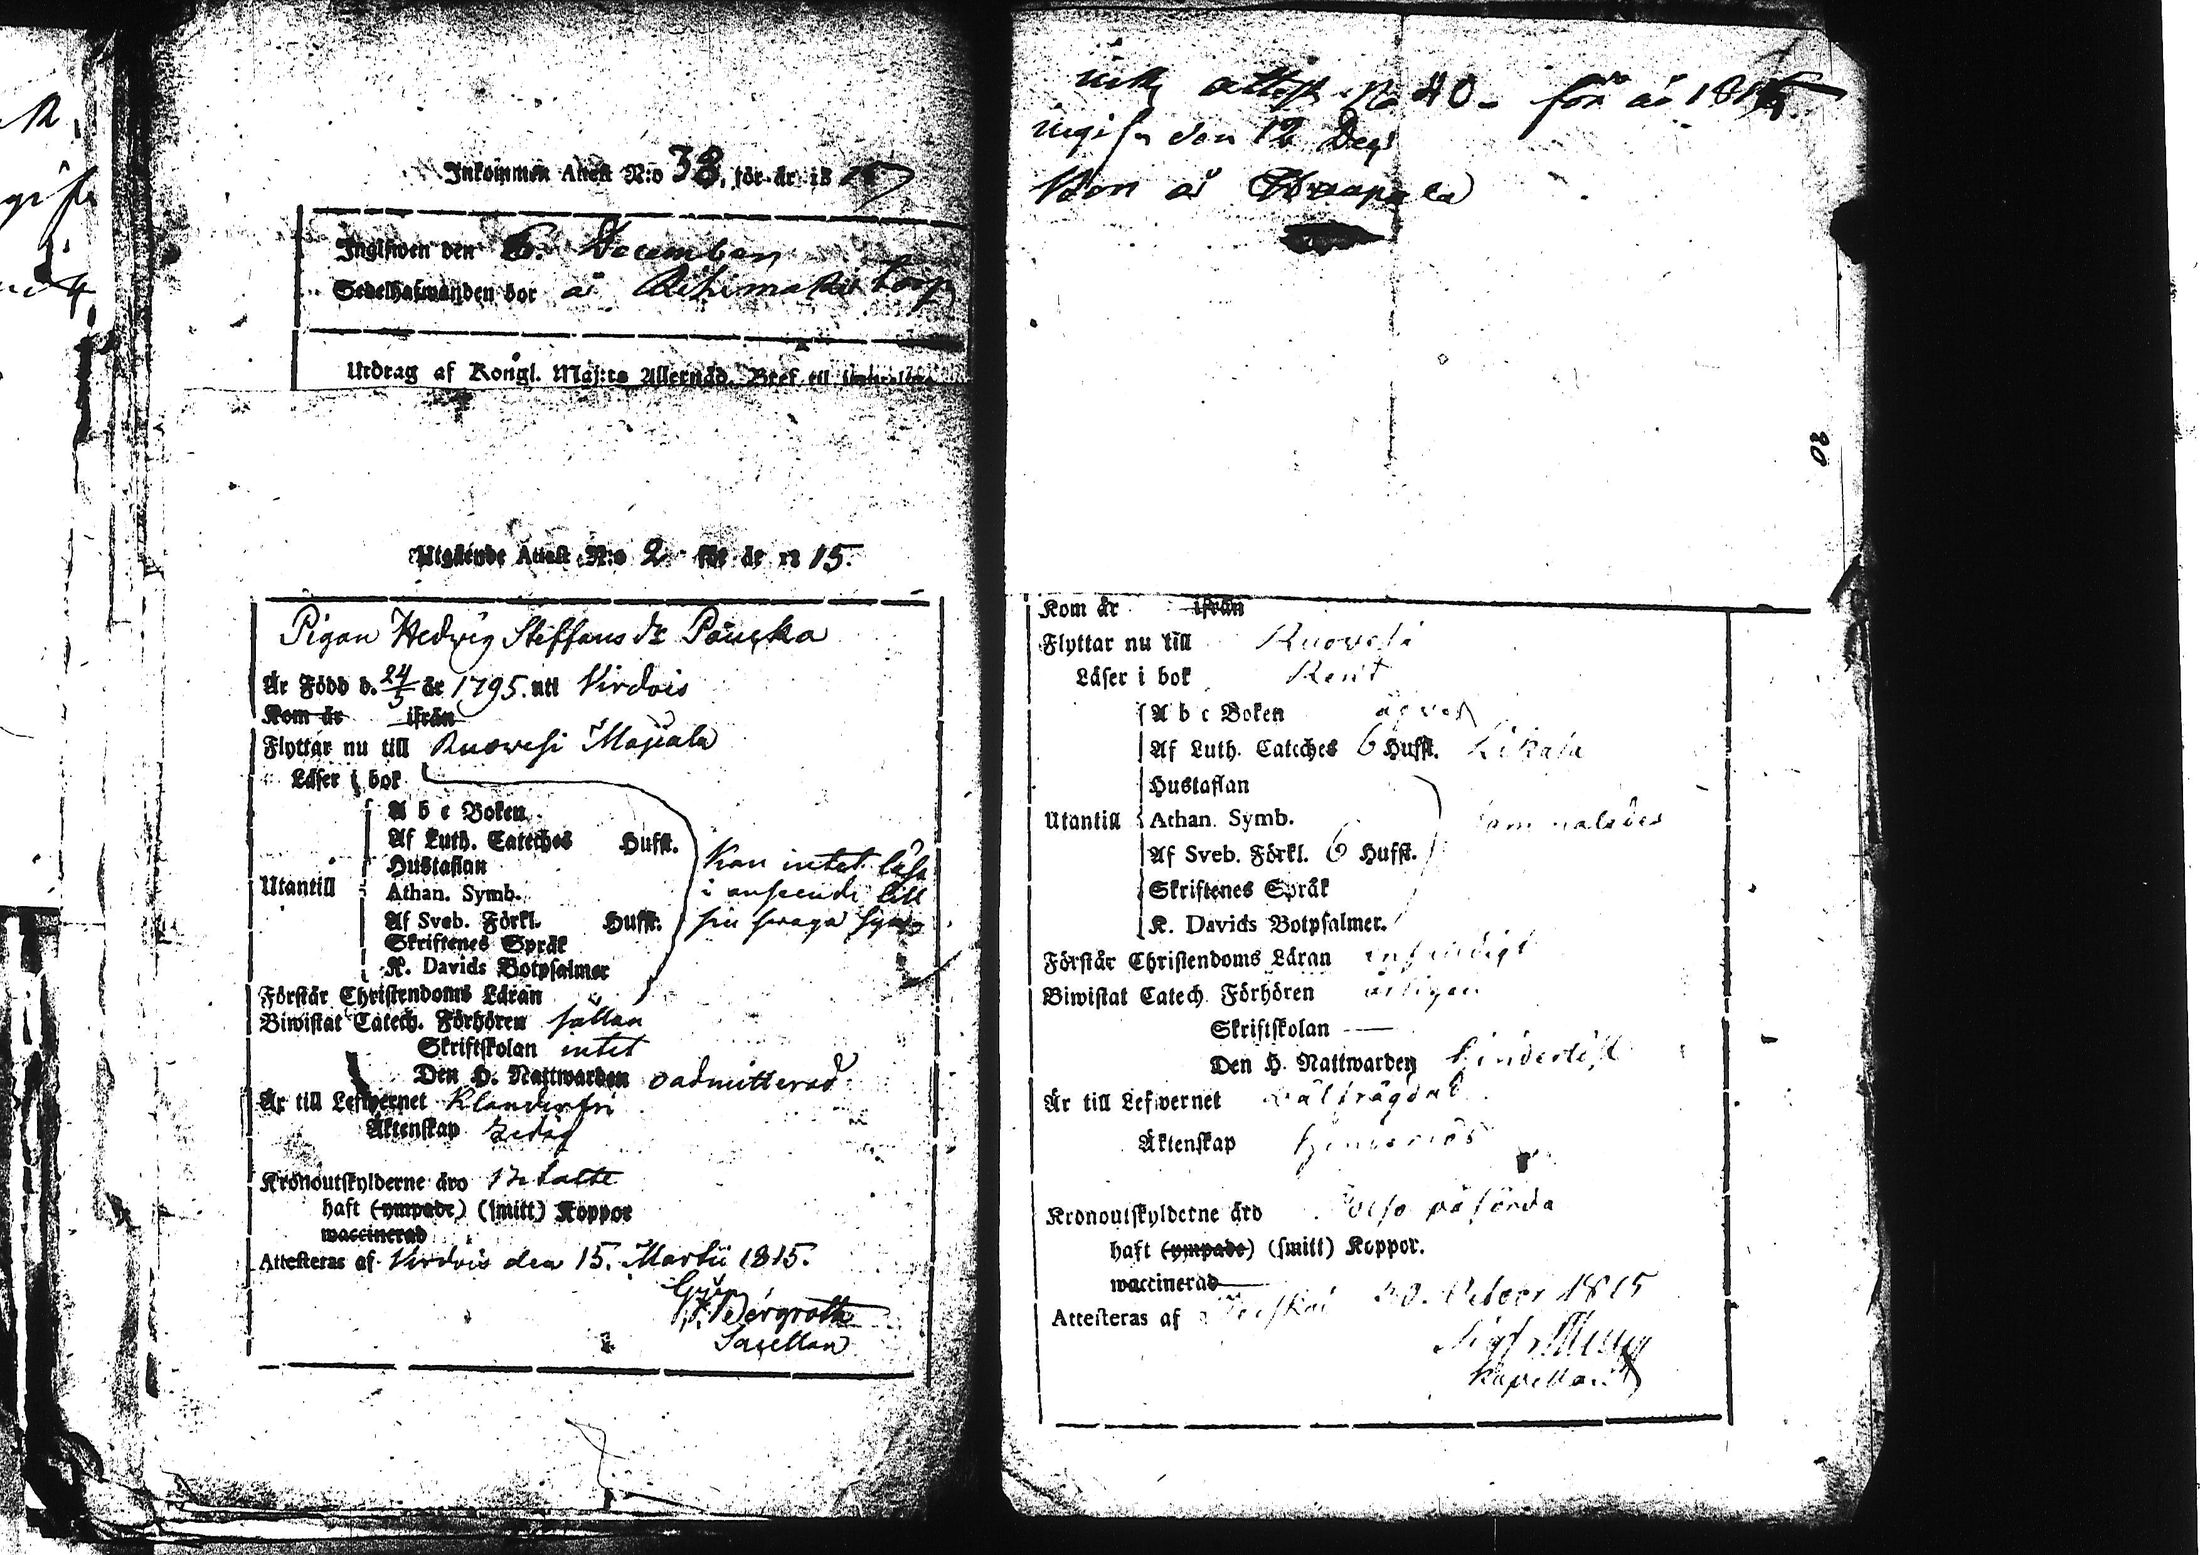 Inkommen Attest N:o 38, för år 18 15
Ingifwen den 6. December
Sedelhafwanden bor å Rihimäki torp
Utdrag af Kongl. Maj:ts Allernåd. Bref till
Utgående Attest N:o 2 för år 18 15.
Pigan Hedvig Steffans dr
Är Född d. 24/5 år 1795. uti Virdois
Kom år ifrån
Flyttar nu till Ruovesi
Läser i bok
A b c Boken
Af Luth. Cateches Hufst.
Hustaflan
Utantill
Athan. Symb.
Af Sveb. Förkl. Hufst.
Skriftenes Språk
K. Davids Botpsalmer
Kan intet läsa
i anseende till
sin svaga syn
Förstår Christendoms Läran
Biwistat Catech. Förhören sällan
Skriftskolan intet
Den H. Nattwarden oadmitterad
Är till Lefwernet Klanderfri
Äktenskap ledig
Kronoutskylderne äro betalte
haft (ympade) (smitt) Koppor
waccinerad
Attesteras af Virdois den 15. Martii 1815.
Bergroth
Sacellan
attest No 40 för år 1815
ingifn den 12 Dec
Bor å
20
Kom år ifrån
Flyttar nu till Ruovesi
Läser i bok Rent
A b c Boken
Af Luth. Cateches 6 Hufst.
Hustaflan
Utantill
Athan. Symb.
Af Sveb. Förkl. 6 Hufst.
Skriftenes Språk
K. Davids Botpsalmer.
sammaledes
Förstår Christendoms Läran enfaldigt
Biwistat Catech. Förhören årligen
Skriftskolan —
Den H. Nattwarden
Är till Lefwernet välfrägdad
Äktenskap hinderlös
Kronoutskylderne äro påförda
haft (ympade) (smitt) Koppor.
waccinerad
Attesteras af 1815
Kapellan